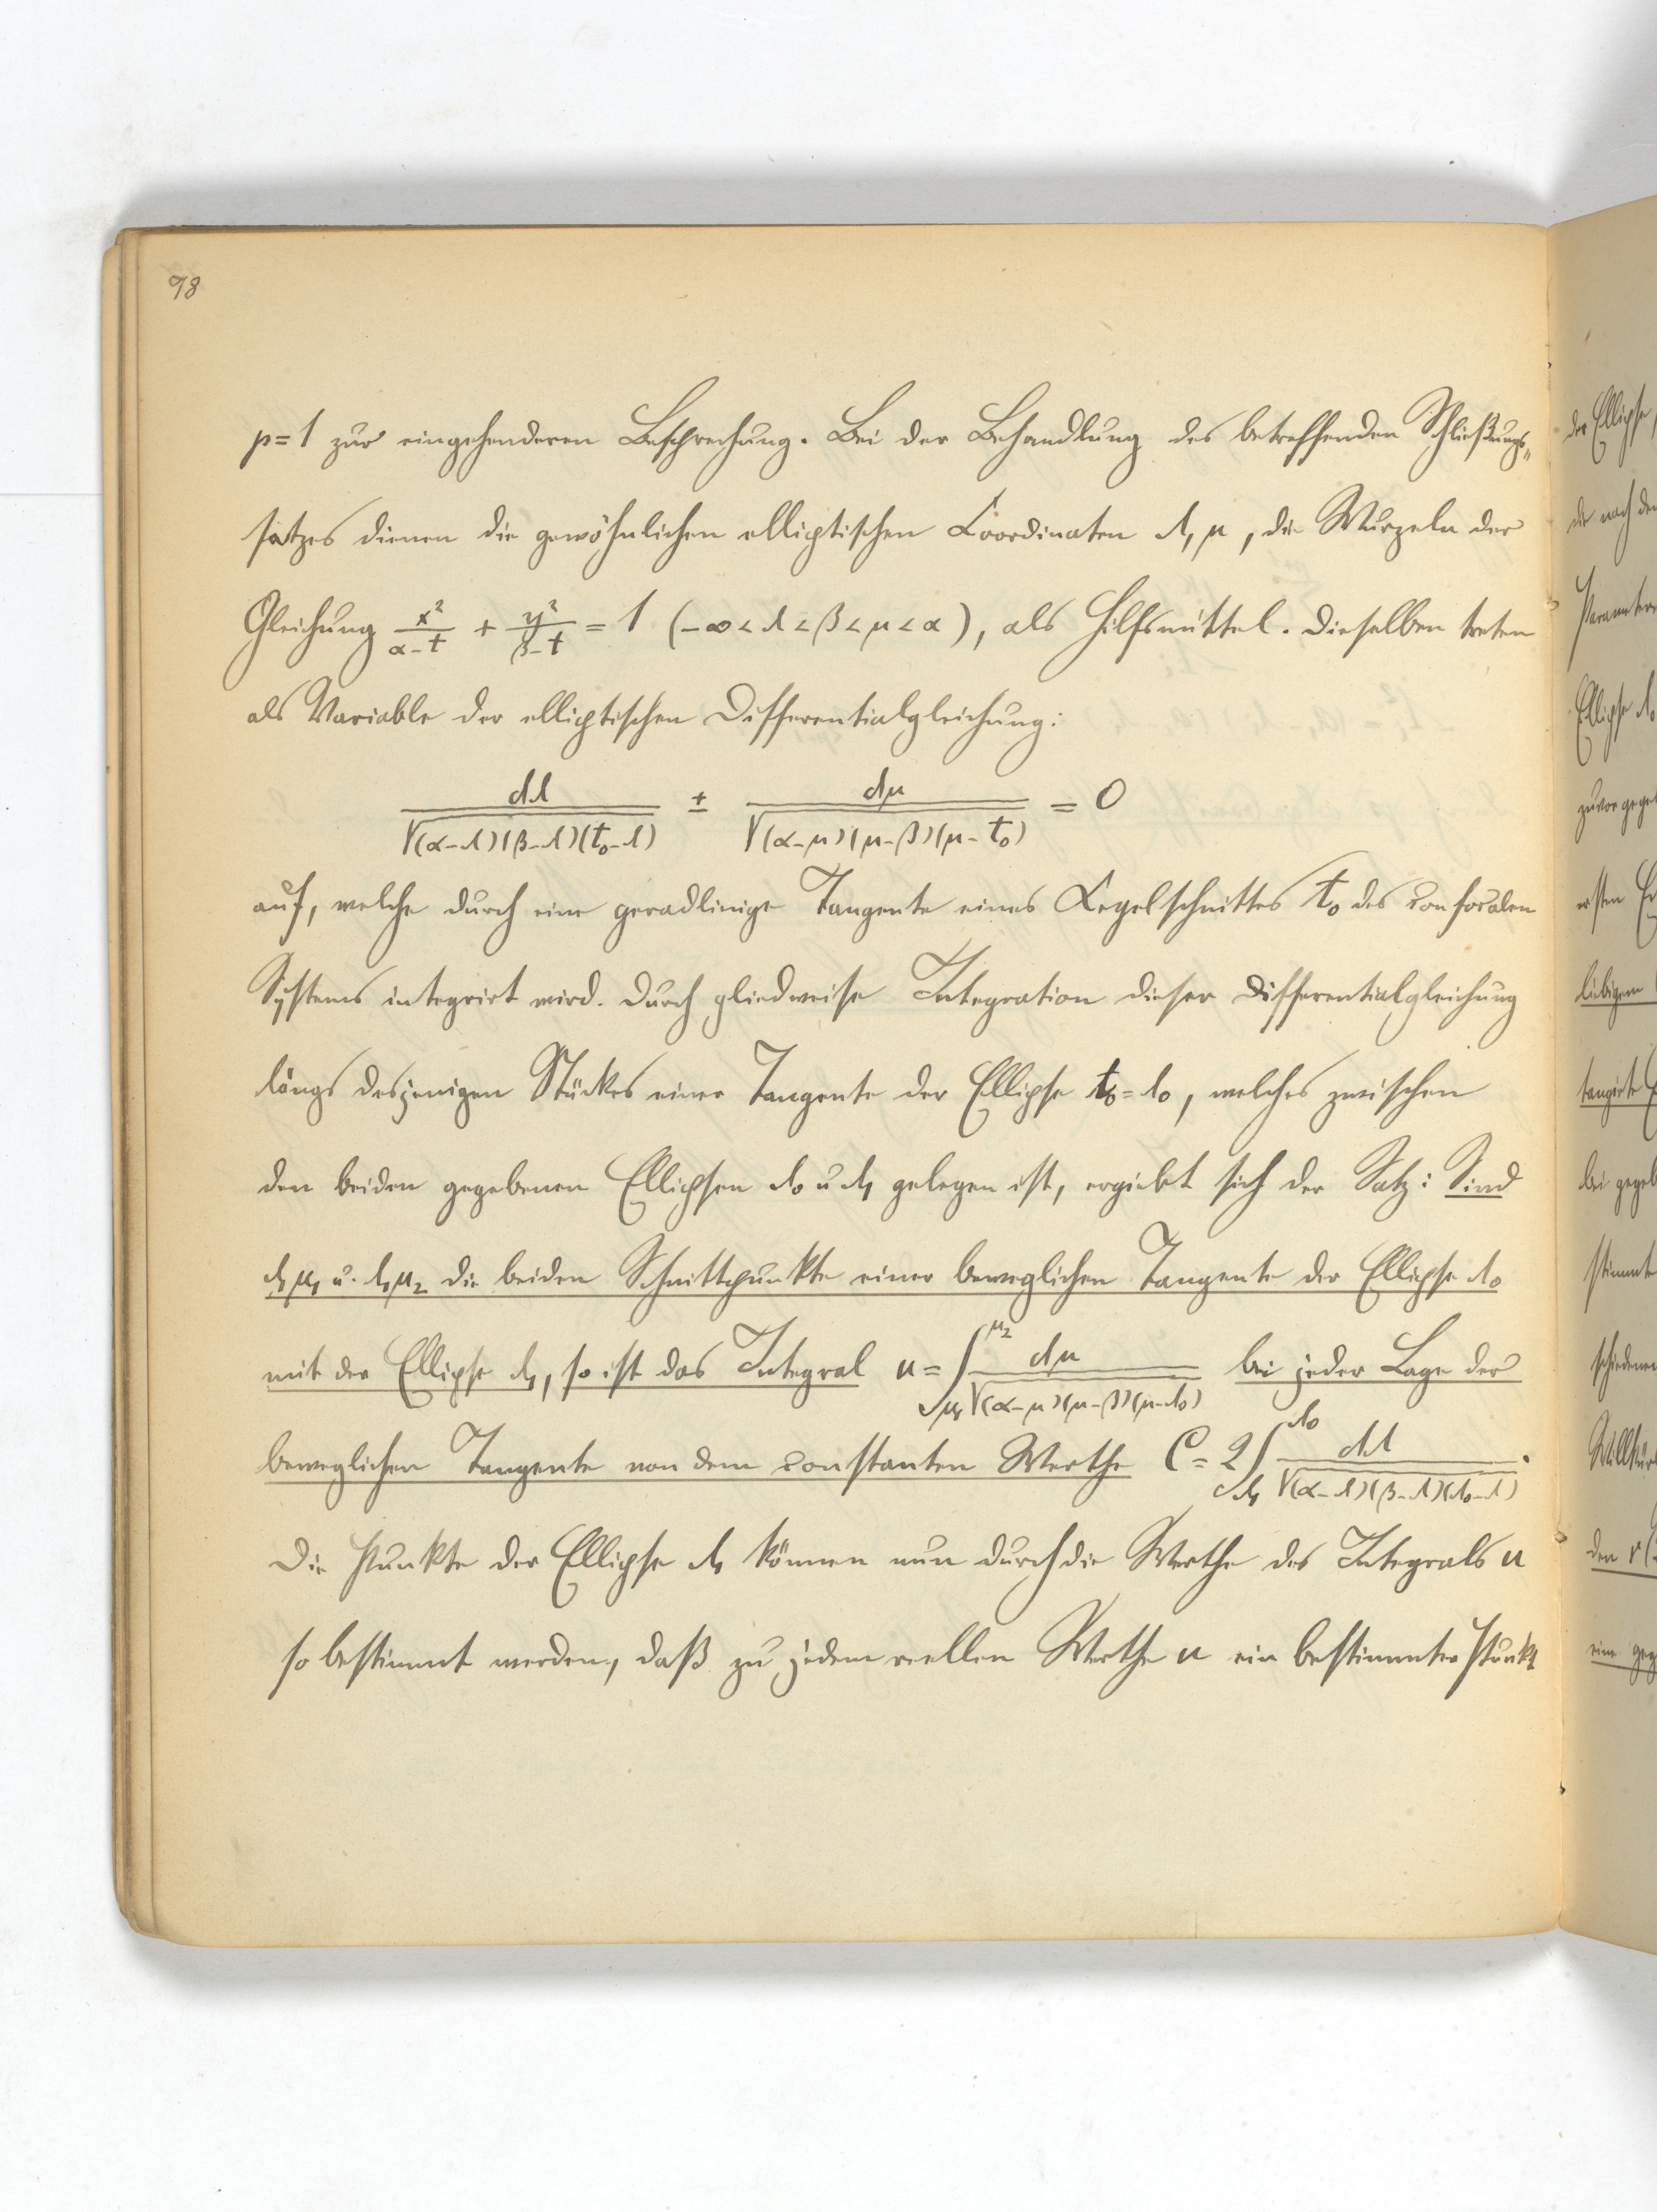 98
p=1 zur eingehenderen Besprechung. Bei der Behandlung des betreffenden Schließungs-
satzes dienen die gewöhnlichen elliptischen Coordinaten λ, μ, die Wurzeln der
Gleichung x²/(α-t) + y²/(β-t) = 1 (-∞<λ<β<μ<α), als Hilfsmittel. Dieselben treten
als Variable der elliptischen Differentialgleichung:
dλ/√((α-λ)(β-λ)(t₀-λ)) ± dμ/√((α-μ)(μ-β)(μ-t₀)) = 0
auf, welche durch eine geradlinige Tangente eines Kegelschnittes t₀ des confocalen
Systems integrirt wird. Durch gliedweise Integration dieser Differentialgleichung
längs desjenigen Stückes einer Tangente der Ellipse t₀=λ₀, welches zwischen
den beiden gegebenen Ellipsen λ₀ u λ₁ gelegen ist, ergiebt sich der Satz: Sind
λ₁μ₁ u. λ₁μ₂ die beiden Schnittpunkte einer beweglichen Tangente der Ellipse λ₀
mit der Ellipse λ₁, so ist das Integral u = ∫_{μ₁}^{μ₂} dμ/√((α-μ)(μ-β)(μ-λ₀)) bei jeder Lage der
beweglichen Tangente von dem constanten Werthe C = 2∫_{λ₁}^{λ₀} dλ/√((α-λ)(β-λ)(λ₀-λ)).
Die Punkte der Ellipse λ₁ können nun durch die Werthe des Integrals u
so bestimmt werden, daß zu jedem reellen Werthe u ein bestimmter Punkt
der Ellipse,
die nach den
Ellipse λ₀
ersten
liebigem
tangirte
bei gegeb
stimmte
schiedenen
Willkür
den
eine geg